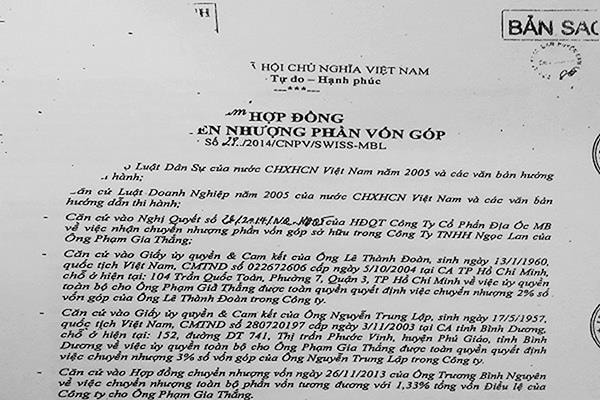 BẢN SAO
HỘI CHỦ NGHĨA VIỆT NAM
Tự do – Hạnh phúc
---***---
HỢP ĐỒNG
ỂN NHƯỢNG PHẦN VỐN GÓP
Số /2014/CNPV/SWISS-MBL
Luật Dân Sự của nước CHXHCN Việt Nam năm 2005 và các văn bản hướng
thi hành;
căn cứ Luật Doanh Nghiệp năm 2005 của nước CHXHCN Việt Nam và các văn bản
hướng dẫn thi hành;
- Căn cứ vào Nghị Quyết số của HĐQT Công Ty Cổ Phần Địa Ốc MB
về việc nhận chuyển nhượng phần vốn góp sở hữu trong Công Ty TNHH Ngọc Lan của
Ông Phạm Gia Thắng;
- Căn cứ vào Giấy ủy quyền & Cam kết của Ông Lê Thành Đoàn, sinh ngày 13/1/1960,
quốc tịch Việt Nam, CMTND số 022672606 cấp ngày 5/10/2004 tại CA TP Hồ Chí Minh,
chỗ ở hiện tại: 104 Trần Quốc Toản, Phường 7, Quận 3, TP Hồ Chí Minh về việc ủy quyền
toàn bộ cho Ông Phạm Gia Thắng được toàn quyền quyết định việc chuyển nhượng 2% số
vốn góp của Ông Lê Thành Đoàn trong Công ty.
- Căn cứ vào Giấy ủy quyền & Cam kết của Ông Nguyễn Trung Lập, sinh ngày 17/5/1957,
quốc tịch Việt Nam, CMTND số 280720197 cấp ngày 3/11/2003 tại CA tỉnh Bình Dương,
chỗ ở hiện tại: 152, đường DT 741, Thị trấn Phước Vinh, huyện Phú Giáo, tỉnh Bình
Dương về việc ủy quyền toàn bộ cho Ông Phạm Gia Thắng được toàn quyền quyết định
việc chuyển nhượng 3% số vốn góp của Ông Nguyễn Trung Lập trong Công ty.
- Căn cứ vào Hợp đồng chuyển nhượng vốn ngày 26/11/2013 của Ông Trương Bình Nguyên
về việc chuyển nhượng toàn bộ phần vốn tương đương với 1,33% tổng vốn Điều lệ của
Công ty cho Ông Phạm Gia Thắng.